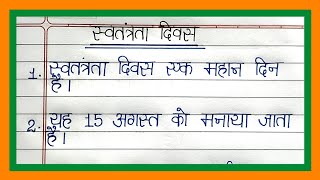 स्वतंत्रता दिवस
1. स्वतंत्रता दिवस एक महान दिन
है।
2. यह 15 अगस्त को मनाया जाता
है।